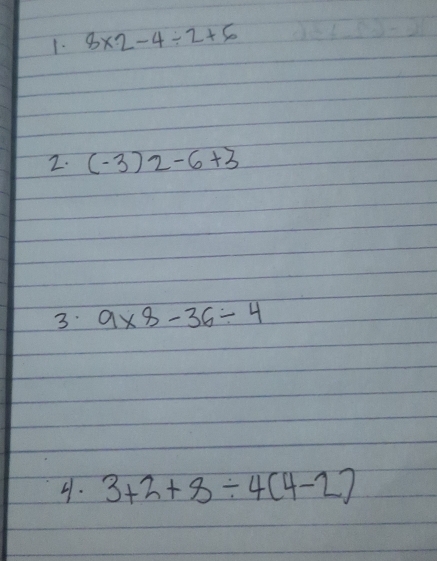 1. 8×2-4÷2+6
2. (-3)2-6+3
3. 9×8-36÷4
4. 3+2+8÷4(4-2)